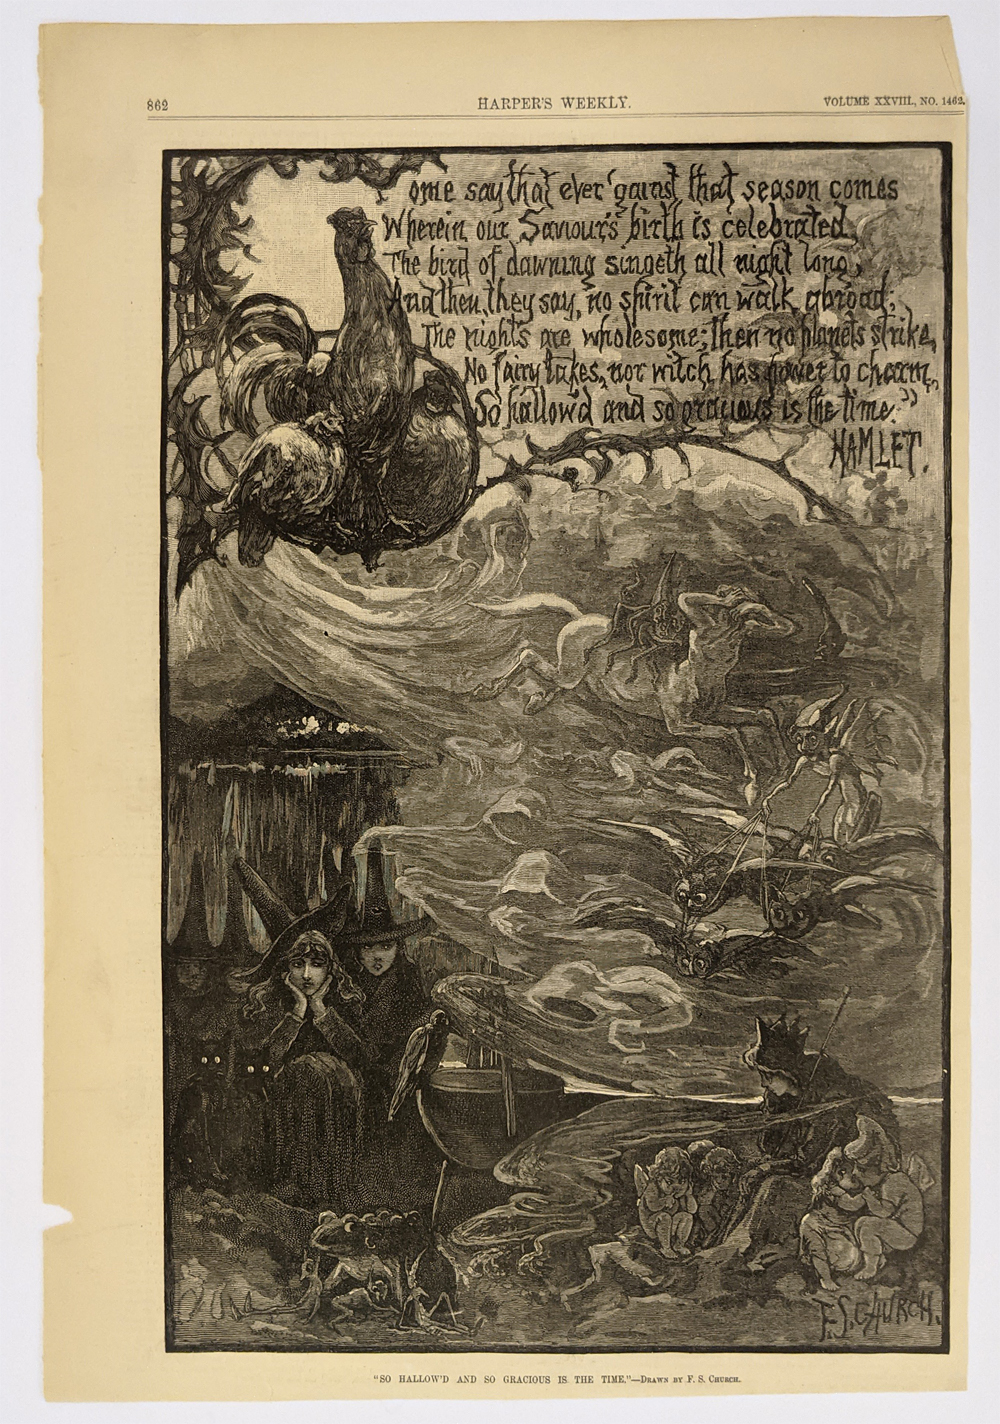 862
HARPER'S WEEKLY.
VOLUME XXVIII., NO. 1462.
ome say that ever 'gainst that season comes
Wherein our Saviour's birth is celebrated,
The bird of dawning singeth all night long;
And then, they say, no spirit can walk abroad;
The nights are wholesome; then no planets strike,
No fairy takes, nor witch has power to charm,
So hallow'd and so gracious is the time."
HAMLET.
F.S. CHURCH.
"SO HALLOW'D AND SO GRACIOUS IS THE TIME."—DRAWN BY F. S. CHURCH.